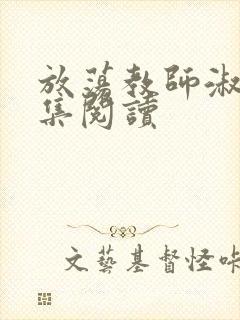 放蕩教師淑
集閱讀
文藝基督怪咔